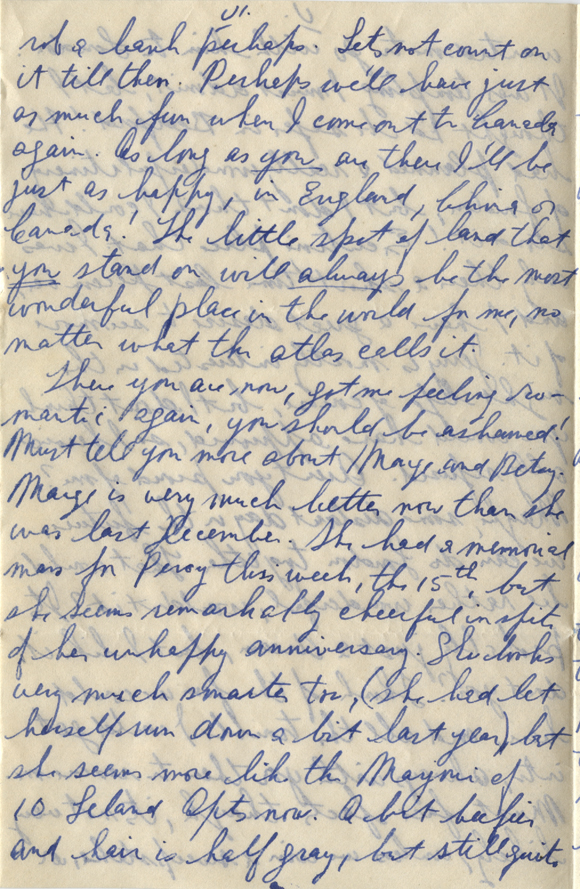 VI.
rob a bank perhaps. Lets not count on
it till then. Perhaps we'll have just
as much fun when I come out to Canada
again. As long as you are there I'll be
just as happy, in England, China or
Canada! The little spot of land that
you stand on will always be the most
wonderful place in the world for me, no
matter what the atlas calls it.
There you are now, got me feeling ro-
mantic again, you should be ashamed!
Must tell you more about Marge and Betsy.
Marge is very much better now than she
was last December. She had a memorial
mass for Percy this week, the 15th, but
she seems remarkably cheerful in spite
of her unhappy anniversary. She looks
very much smarter too, (she had let
herself run down a bit last year) but
she seems more like the Marjorie of
10 Leland Apts now. A bit beefier
and hair is half gray, but still quite